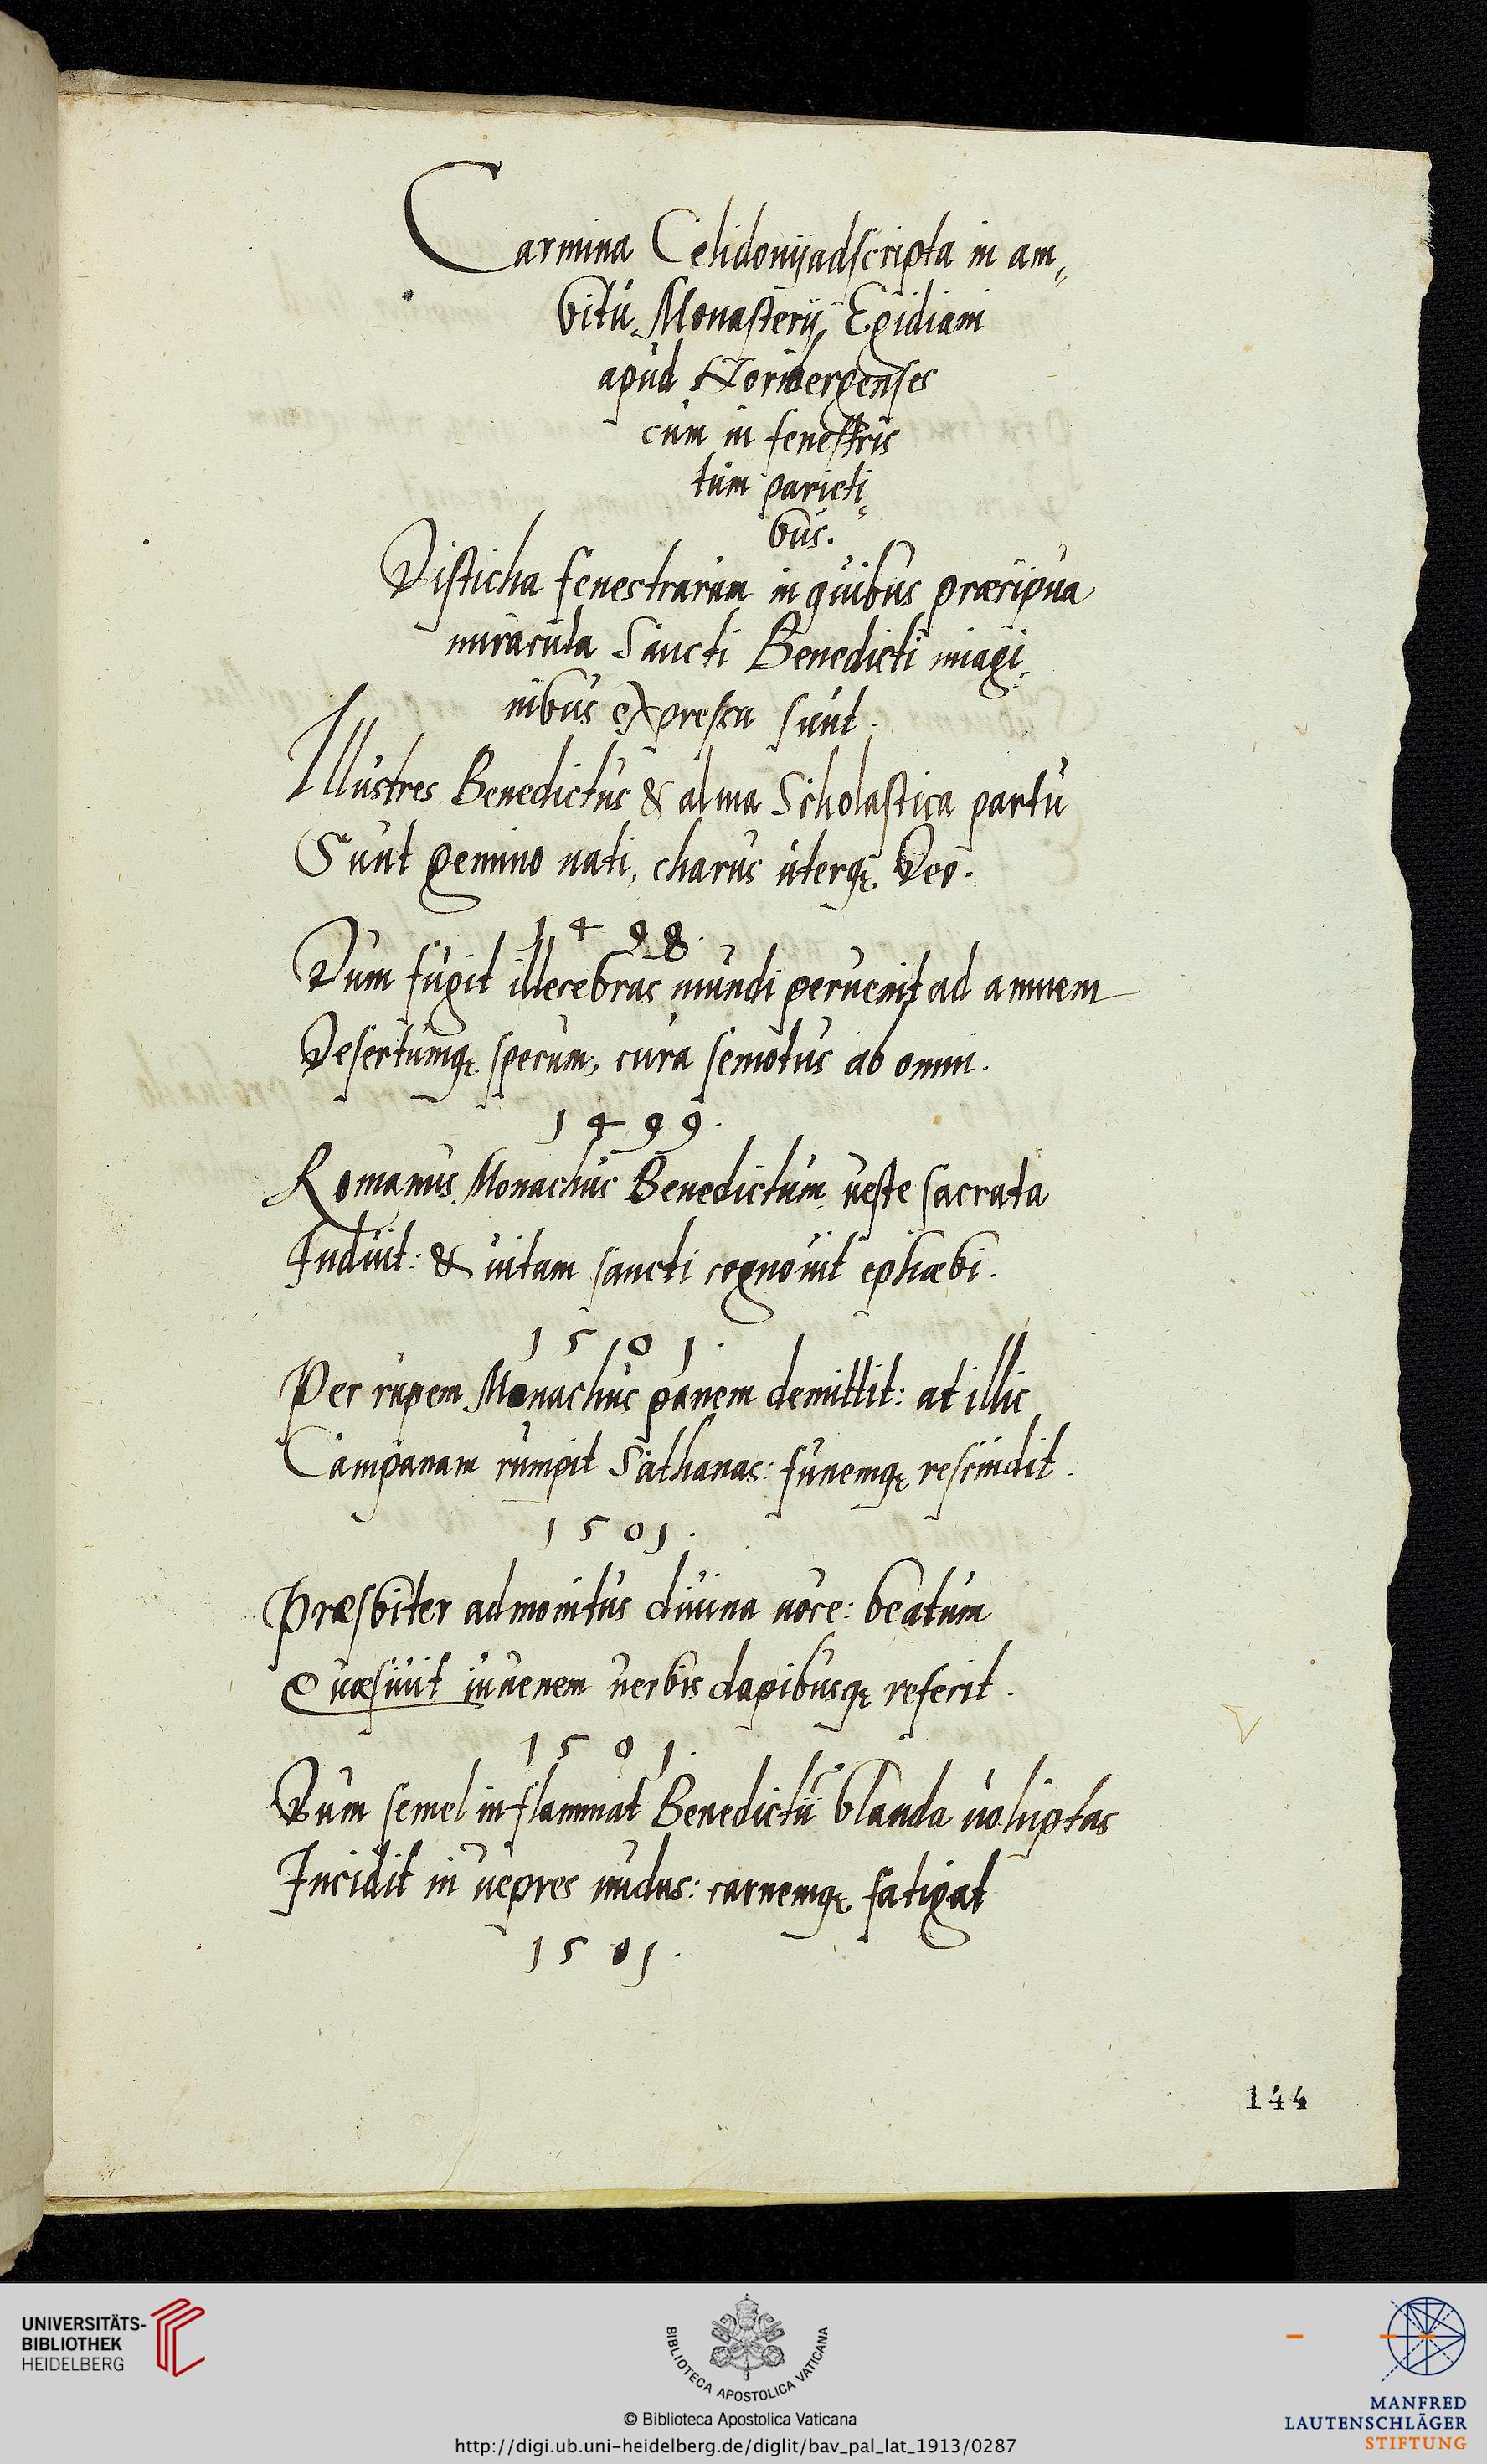 Carmina Celidonij adscripta in am„
bitu Monasterij Egidiani
apud Norinbergenses
cum in fenestris
tum parieti„
bus.
Disticha fenestrarum in quibus præcipua
miracula Sancti Benedicti imagi„
nibus expressa sunt.
Illustres Benedictus & alma Scholastica partu
Sunt gemino nati, charus uterq; Deo.
1498.
Dum fugit illecebras mundi peruenit ad amnem
Desertumq; specum, cura semotus ab omni.
1499.
Romanus Monachus Benedictum ueste sacrata
Induit: & uitam sancti cognouit ephæbi.
1501.
Per rupem Monachus panem demittit: at illic
Campanam rumpit Sathanas: funemq; rescindit.
1501.
Præsbiter admonitus diuina uoce: beatum
Quæsiuit iuuenem uerbis dapibusq; refecit.
1501.
Dum semel inflammat Benedictū blanda uoluptas
Incidit in uepres nudus: carnemq; fatigat
1501.
144
UNIVERSITÄTS-
BIBLIOTHEK
HEIDELBERG
BIBLIOTHECA APOSTOLICA VATICANA
© Biblioteca Apostolica Vaticana
http://digi.ub.uni-heidelberg.de/diglit/bav_pal_lat_1913/0287
MANFRED
LAUTENSCHLÄGER
STIFTUNG